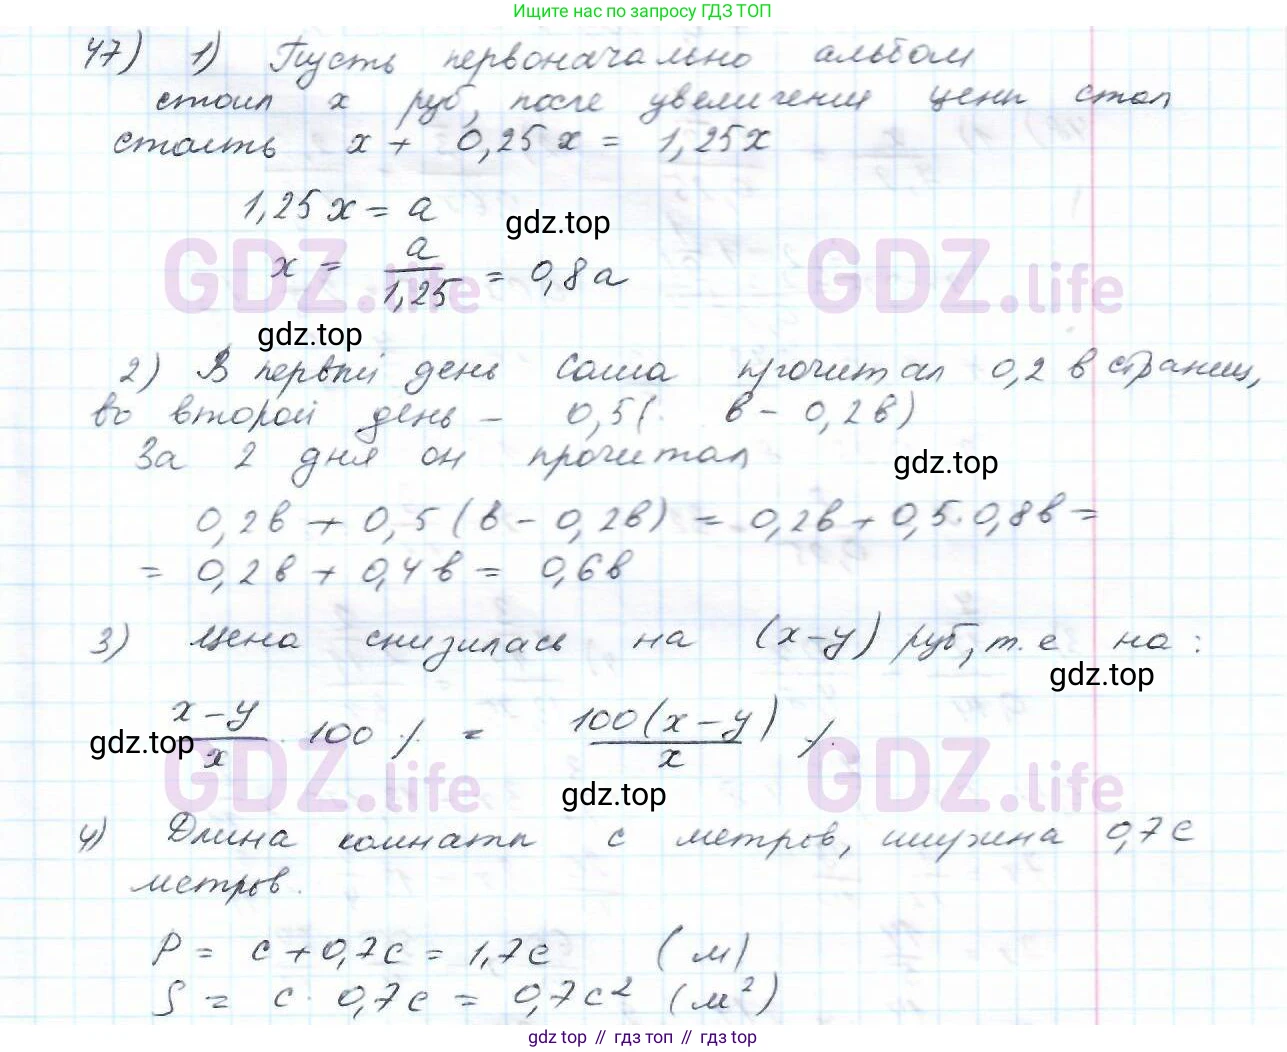 Ищите нас по запросу ГДЗ ТОП
47) 1) Пусть первоначально альбом
стоил x руб, после увеличения цены стал
стоить x + 0,25x = 1,25x
1,25x = a
gdz.top
x = a/1,25 = 0,8a
GDZ.life GDZ.life
gdz.top
2) В первый день Саша прочитал 0,2в страниц,
во второй день – 0,5(в – 0,2в)
За 2 дня он прочитал
gdz.top
0,2в + 0,5(в – 0,2в) = 0,2в + 0,5·0,8в =
= 0,2в + 0,4в = 0,6в
3) Цена снизилась на (x–y) руб, т.е на:
gdz.top
x–y/x · 100 % = 100(x–y)/x %
gdz.top
GDZ.life GDZ.life
gdz.top
4) Длина комнаты с метров, ширина 0,7с
метров.
P = c + 0,7c = 1,7c (м)
S = c · 0,7c = 0,7c² (м²)
gdz top // гдз топ // гдз top